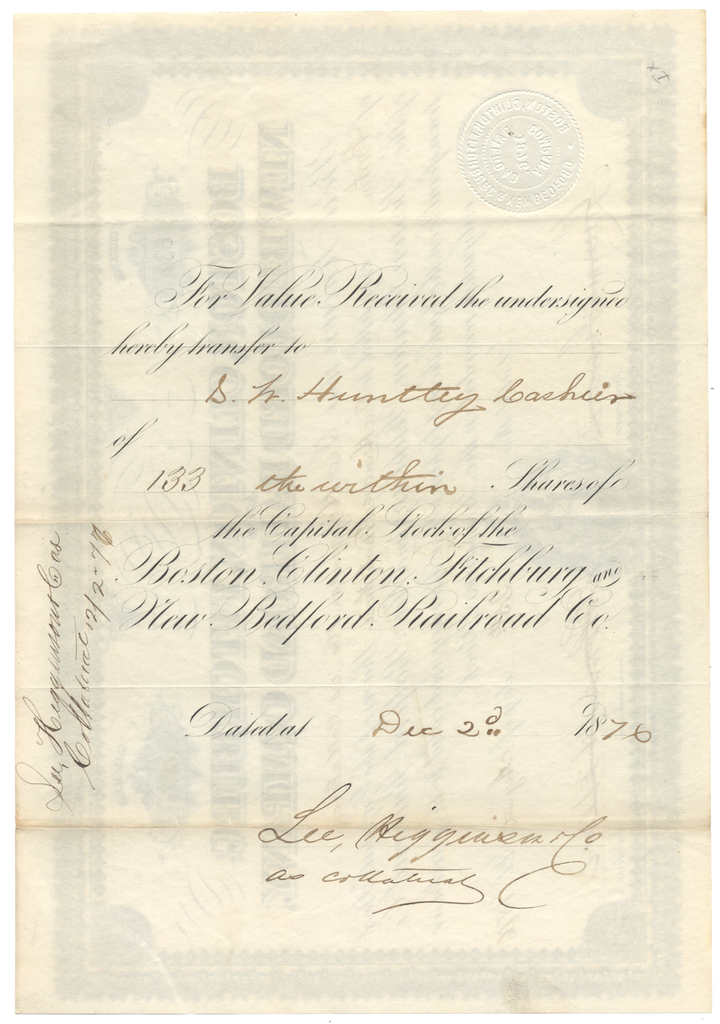 For Value Received the undersigned
hereby transfer to
D. W. Huntley Cashier
of
133 the within Shares of
the Capital Stock of the
Boston, Clinton, Fitchburg and
New Bedford Railroad Co.
Dated at Dec 2d 1876
Lee, Higginson & Co.
as collateral
Lee, Higginson & Co as
Collateral 12/2-76